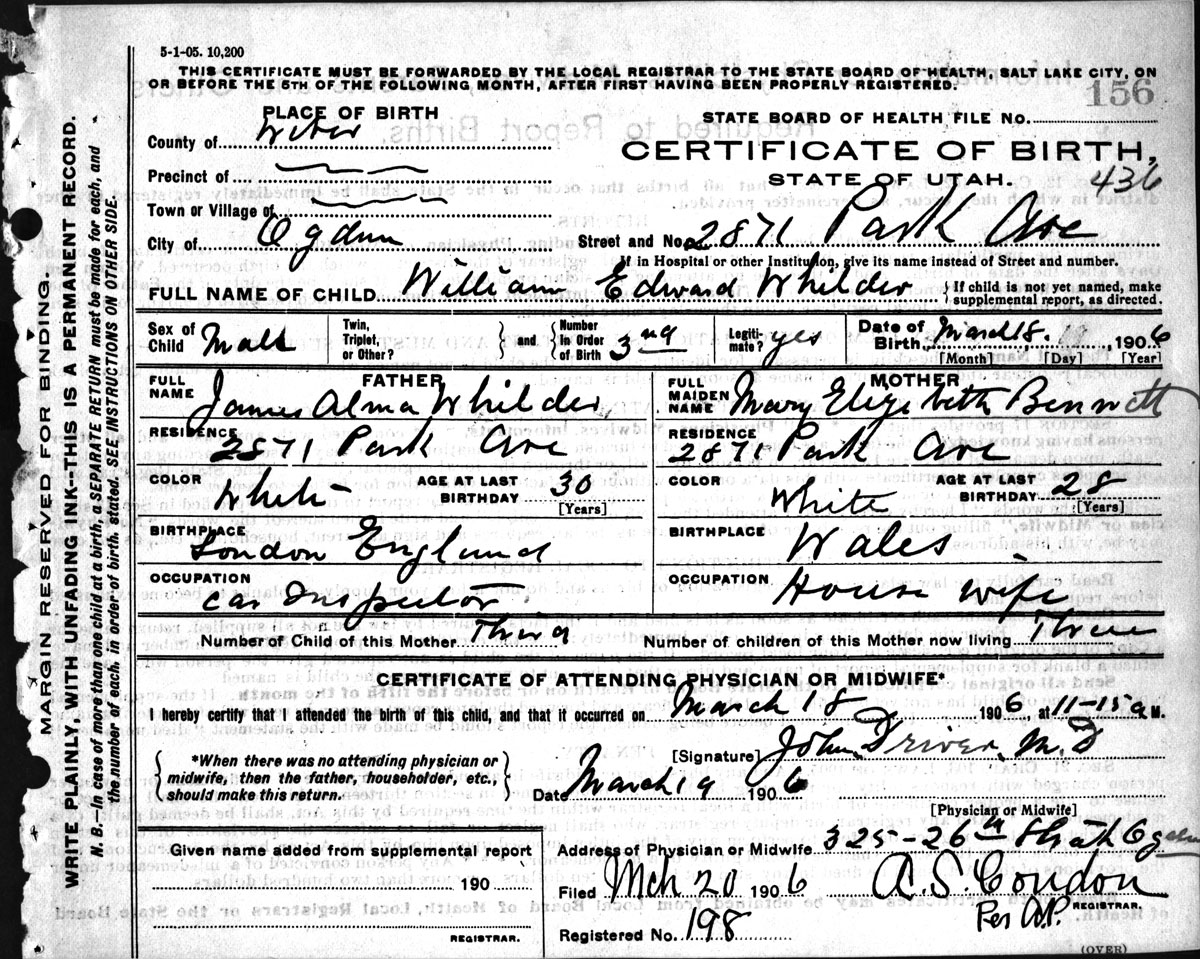 5-1-05. 10,200
THIS CERTIFICATE MUST BE FORWARDED BY THE LOCAL REGISTRAR TO THE STATE BOARD OF HEALTH, SALT LAKE CITY, ON
OR BEFORE THE 5TH OF THE FOLLOWING MONTH, AFTER FIRST HAVING BEEN PROPERLY REGISTERED.
156
PLACE OF BIRTH
STATE BOARD OF HEALTH FILE NO.
County of Weber
CERTIFICATE OF BIRTH,
Precinct of
STATE OF UTAH. 436
Town or Village of
City of Ogden Street and No. 2871 Park Ave
If in Hospital or other Institution, give its name instead of Street and number.
FULL NAME OF CHILD William Edward Whilder { If child is not yet named, make supplemental report, as directed.
Sex of Child Male Twin, Triplet, or Other? } and { Number In Order of Birth 3rd Legiti-mate? yes Date of Birth, March 18. 1906
[Month] [Day] [Year]
FATHER MOTHER
FULL NAME James Alma Whilder FULL MAIDEN NAME Mary Elizabeth Bennett
RESIDENCE 2871 Park Ave RESIDENCE 2871 Park Ave
COLOR White AGE AT LAST BIRTHDAY 30 [Years] COLOR White AGE AT LAST BIRTHDAY 28 [Years]
BIRTHPLACE London England BIRTHPLACE Wales
OCCUPATION Car Inspector OCCUPATION House wife
Number of Child of this Mother Third Number of children of this Mother now living Three
CERTIFICATE OF ATTENDING PHYSICIAN OR MIDWIFE*
I hereby certify that I attended the birth of this child, and that it occurred on March 18 1906, at 11-15 a. M.
{ *When there was no attending physician or midwife, then the father, householder, etc., should make this return. }
[Signature] John Driver M.D
Date March 19 1906
[Physician or Midwife]
Address of Physician or Midwife 325-26th Ogden
Given name added from supplemental report
190
REGISTRAR.
Filed Mch 20 1906 A.S. Condon
REGISTRAR.
Per A.P.
Registered No. 198
(OVER)
MARGIN RESERVED FOR BINDING.
WRITE PLAINLY, WITH UNFADING INK--THIS IS A PERMANENT RECORD.
N. B.—In case of more than one child at a birth, a SEPARATE RETURN must be made for each, and
the number of each, in order of birth, stated. SEE INSTRUCTIONS ON OTHER SIDE.